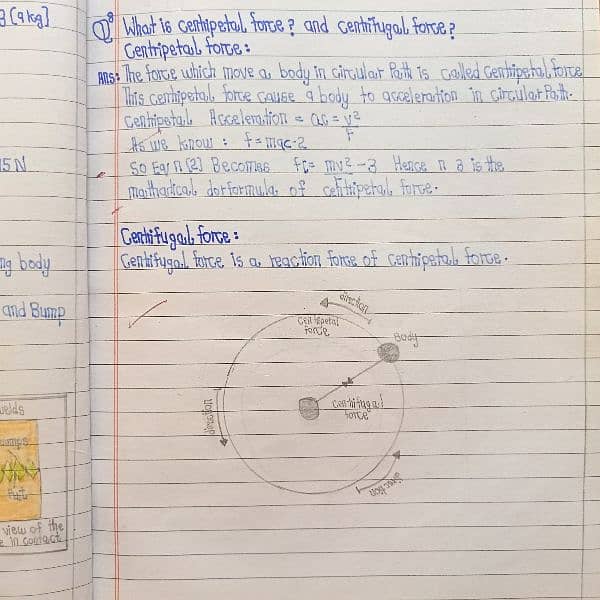 3 (9kg)
15 N
ng body
and Bump
welds
umps
flat
view of the
e in contact
Q8 What is centripetal force? and centrifugal force?
Centripetal force:
Ans: The force which move a body in circular Path is called Centripetal force
This centripetal force cause a body to acceleration in circular Path.
Centripetal Acceleration = ac = v2/r
As we know: f=mac-2
So Eq n (2) Becomes fc= mv2/r -3 Hence n 3 is the
of centripetal force.
Centrifugal force:
Centrifugal force is a reaction force of centripetal force.
direction
Centripetal
force
Body
Centrifugal
force
direction
direction